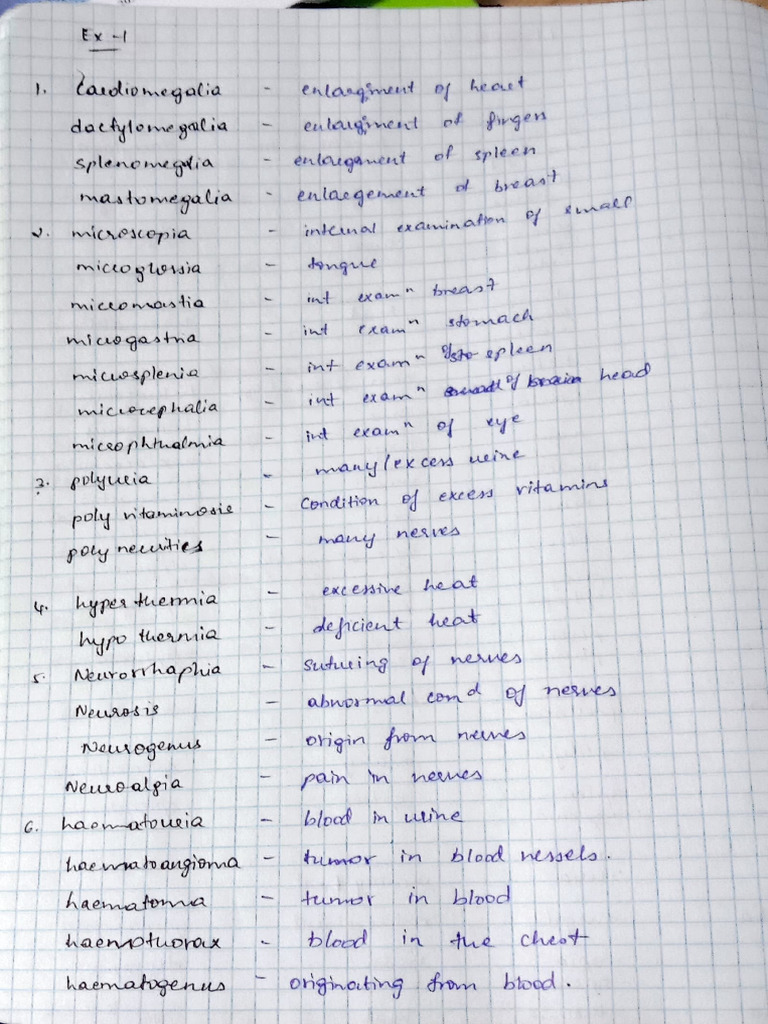 Ex -1
1. Cardiomegalia - enlargiment of heart
dactylomegalia - enlargiment of fingers
splenomegalia - enlargement of spleen
mastomegalia - enlargement of breast
2. microscopia - internal examination of small
microglossia - tongue
micromastia - int examⁿ breast
microgastria - int examⁿ stomach
microsplenia - int examⁿ of spleen
microcephalia - int examⁿ of head
microphthalmia - int examⁿ of eye
3. polyuria - many/excess urine
poly vitaminosis - Condition of excess vitamins
poly neurities - many nerves
4. hyper thermia - excessive heat
hypo thermia - deficient heat
5. Neurorrhaphia - suturing of nerves
Neurosis - abnormal conᵈ of nerves
Neurogenus - origin from nerves
Neuroalgia - pain in nerves
6. haematouria - blood in urine
haematoangioma - tumor in blood vessels.
haematoma - tumor in blood
haemothorax - blood in the chest
haematogenus - originating from blood.